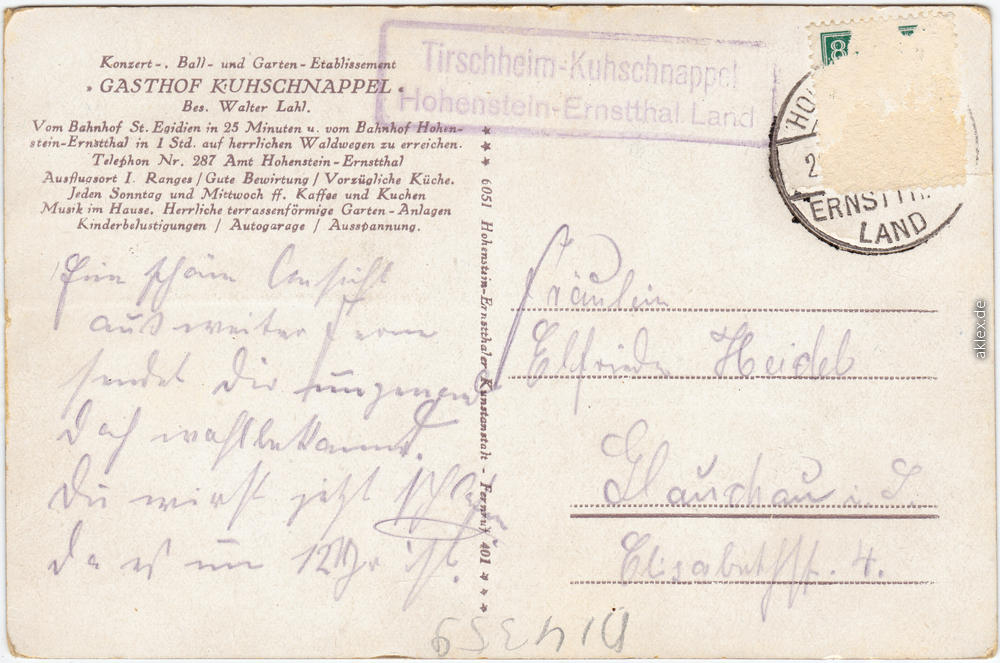 Konzert-, Ball- und Garten-Etablissement
„GASTHOF KUHSCHNAPPEL“
Bes. Walter Lahl.
Vom Bahnhof St. Egidien in 25 Minuten u. vom Bahnhof Hohen-
stein-Ernstthal in 1 Std. auf herrlichen Waldwegen zu erreichen.
Telephon Nr. 287 Amt Hohenstein-Ernstthal
Ausflugsort I. Ranges / Gute Bewirtung / Vorzügliche Küche.
Jeden Sonntag und Mittwoch ff. Kaffee und Kuchen
Musik im Hause. Herrliche terrassenförmige Garten-Anlagen
Kinderbelustigungen / Autogarage / Ausspannung.
Tirschheim-Kuhschnappel
Hohenstein-Ernstthal Land
8
HO
2
ERNSTTH
LAND
*** 6051 Hohenstein-Ernstthaler Kunstanstalt - Fernruf 401 ***
Eine schöne Ansicht
aus weiter Ferne
sendet Dir ungenannt
doch wohlbekannt.
Du wirst jetzt
da es um 12 Uhr ist.
Fräulein
Elfriede Heidel
Glauchau i. S.
Elisabethstr. 4.
D14359
aklex.de